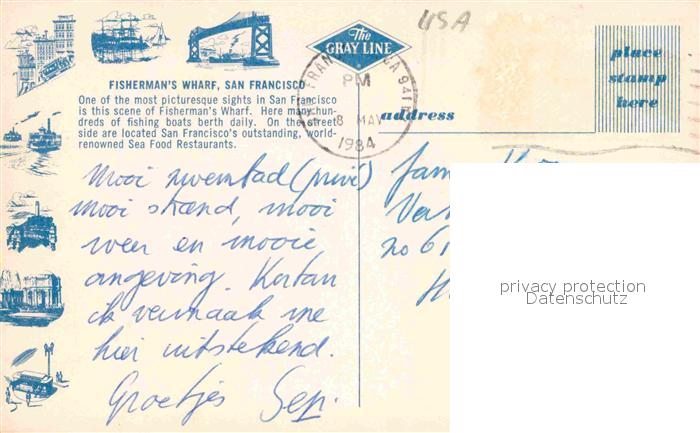 USA
The
GRAY LINE
place
stamp
here
PM
8 MAY
1984
FISHERMAN'S WHARF, SAN FRANCISCO
One of the most picturesque sights in San Francisco
is this scene of Fisherman's Wharf. Here many hun-
dreds of fishing boats berth daily. On the street
side are located San Francisco's outstanding, world-
renowned Sea Food Restaurants.
address
Mooi zwembad (privé)
mooi strand, mooi
weer en mooie
omgeving. Kortan
ik vermaak me
hier uitstekend.
Groetjes Sep.
fam
no 61
privacy protection
Datenschutz